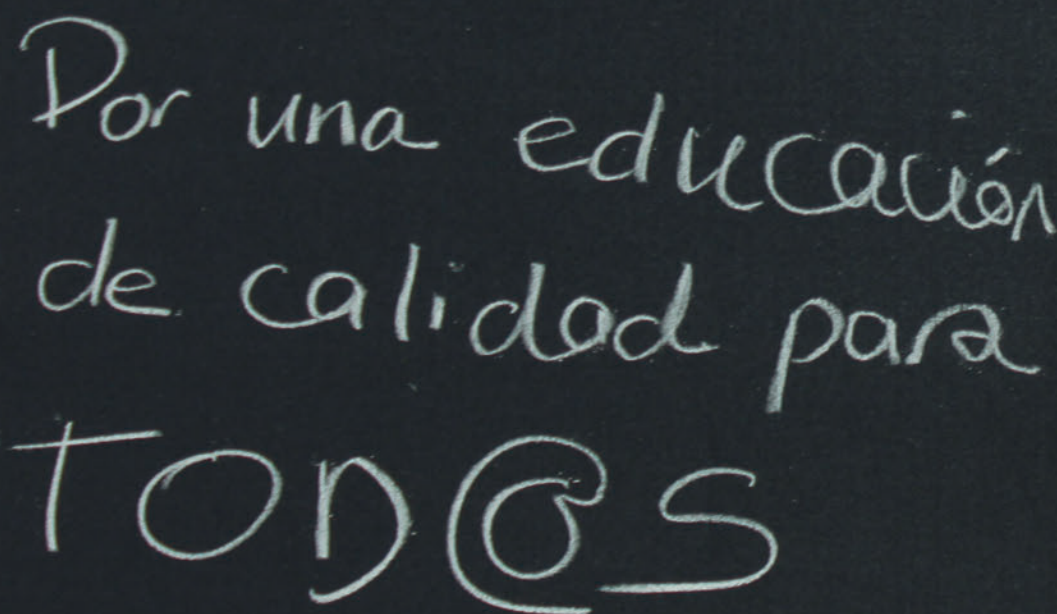 Por una educación
de calidad para
TOD@S